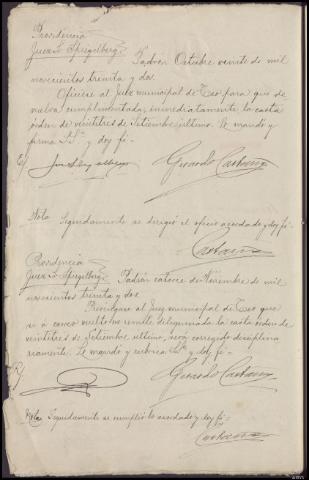 Providencia
Juez Sr Spiegelberg. Padrón Octubre veinte de mil
novecientos treinta y dos
Ofíciese al Juez municipal de Teo para que de
vuelva cumplimentada, inmediatamente la carta
orden de veintitres de Setiembre último. Lo mandó y
firma Sª y doy fé.-
E/
Gerardo Castaing
Nota Seguidamente se dirigió el oficio acordado y doy fé.-
Castaing
Providencia
Juez Sr Spiegelberg. Padrón catorce de Noviembre de mil
novecientos treinta y dos
Prevéngase al Juez municipal de Teo que
si a correo vuelto no remite diligenciada la carta orden de
veintitres de Setiembre último, será corregido disciplina
riamente. Lo mandó y rubrica Sª y doy fé.-
Gerardo Castaing
Nota Seguidamente se cumplió lo acordado y doy fé.-
Castaing